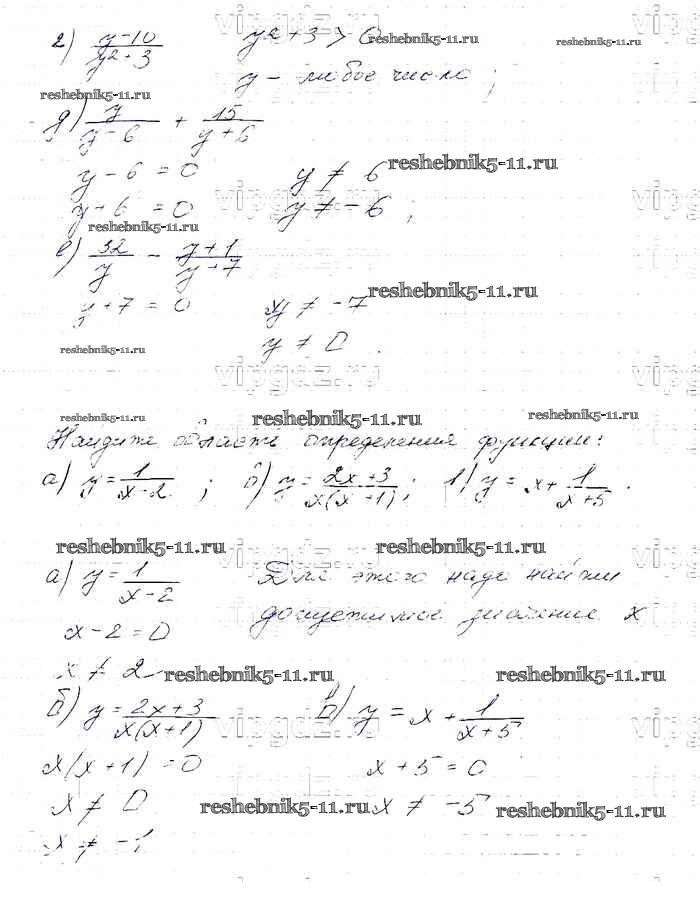 г) y-10/y²+3 y²+3 > 0 reshebnik5-11.ru
y - любое число ;
reshebnik5-11.ru
д) y/y-6 + 15/y+6
y - 6 = 0 y ≠ 6 reshebnik5-11.ru
y+6 = 0 y ≠ -6 ;
reshebnik5-11.ru
е) 32/y - y+1/y+7
y+7 = 0 y ≠ -7 reshebnik5-11.ru
y ≠ 0 .
reshebnik5-11.ru
vipgdz.ru
reshebnik5-11.ru reshebnik5-11.ru reshebnik5-11.ru
Найдите область определения функции:
а) y = 1/x-2 ; б) y = 2x+3/x(x+1) ; в) y = x + 1/x+5 .
reshebnik5-11.ru reshebnik5-11.ru
а) y = 1/x-2 Для этого надо найти
x-2 = 0 допустимое значение x
x ≠ 2 reshebnik5-11.ru reshebnik5-11.ru
б) y = 2x+3/x(x+1) в) y = x + 1/x+5
x(x+1) = 0 x+5 = 0
x ≠ 0 reshebnik5-11.ru x ≠ -5 reshebnik5-11.ru
x ≠ -1